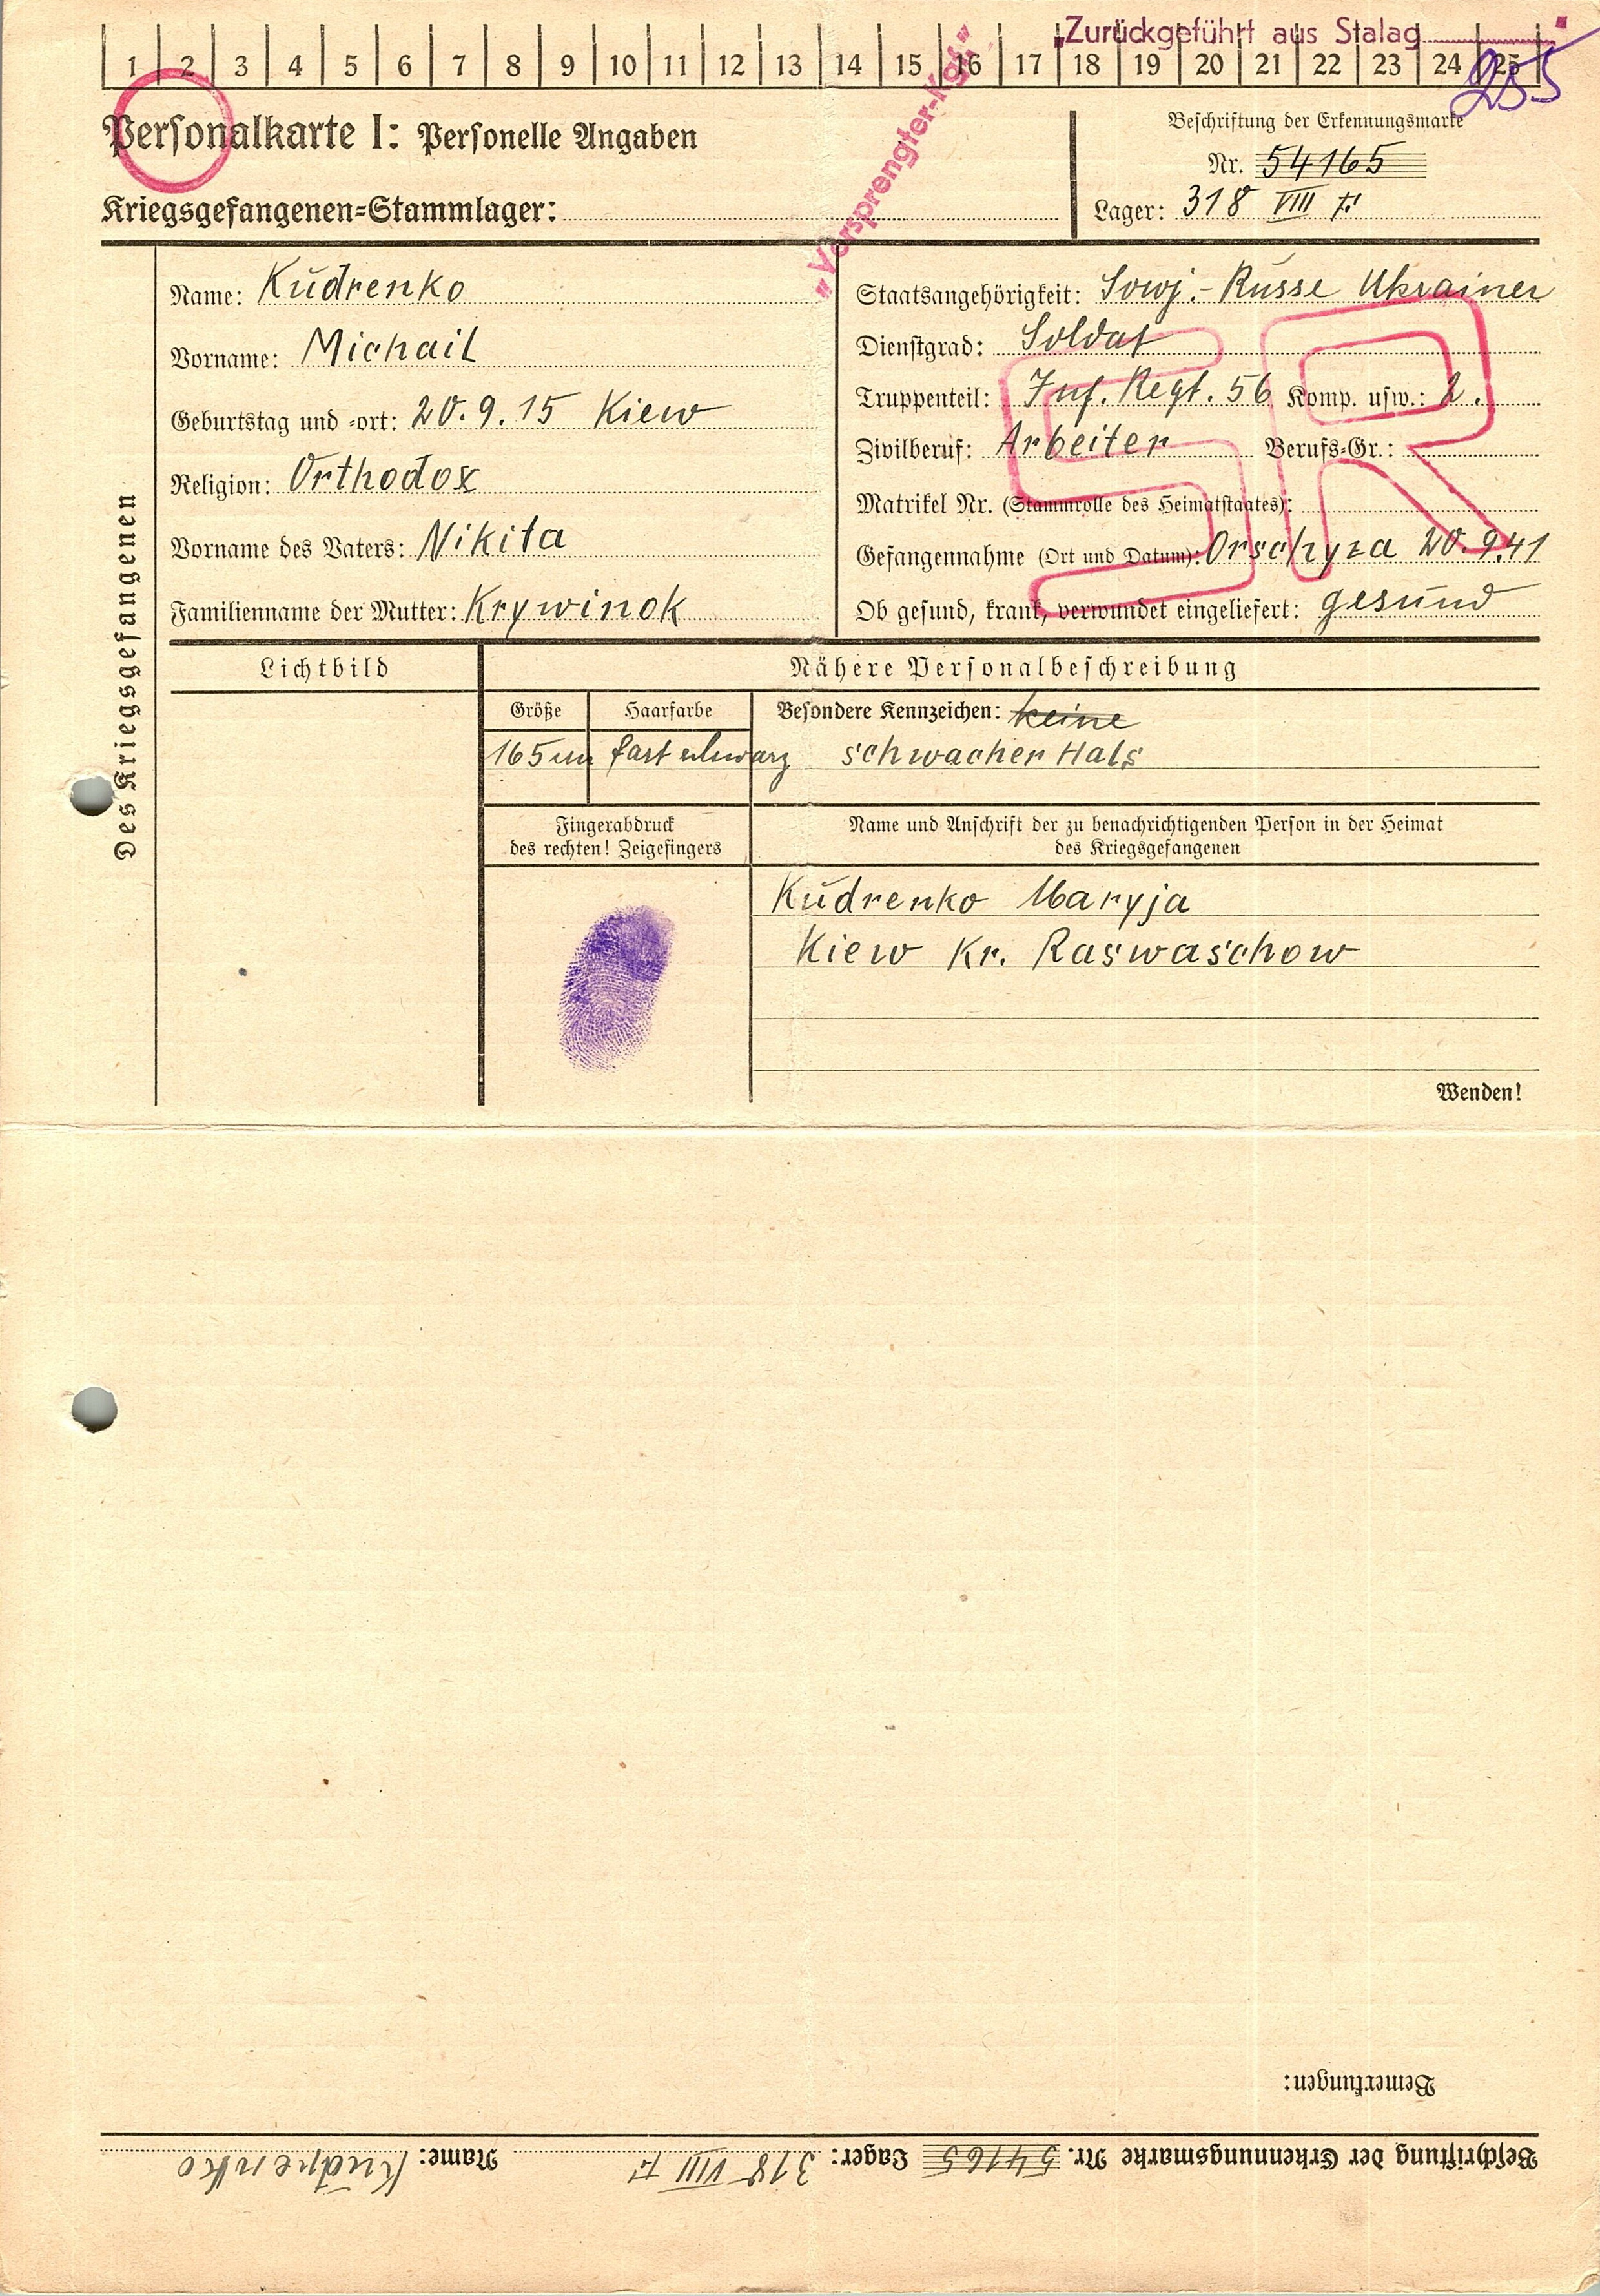 „Zurückgeführt aus Stalag "
255
1 2 3 4 5 6 7 8 9 10 11 12 13 14 15 16 17 18 19 20 21 22 23 24 25
„Versprengter-Kgf."
Personalkarte I: Personelle Angaben
Kriegsgefangenen=Stammlager:
Beschriftung der Erkennungsmarke
Nr. 54165
Lager: 318 VIII F
Des Kriegsgefangenen
Name: Kudrenko
Vorname: Michail
Geburtstag und =ort: 20.9.15 Kiew
Religion: Orthodox
Vorname des Vaters: Nikita
Familienname der Mutter: Krywinok
Staatsangehörigkeit: Sowj.-Russe Ukrainer
Dienstgrad: Soldat
Truppenteil: Inf. Regt. 56 Komp. usw.: 2.
Zivilberuf: Arbeiter Berufs=Gr.:
Matrikel Nr. (Stammrolle des Heimatstaates):
Gefangennahme (Ort und Datum): Orschyza 20.9.41
Ob gesund, krank, verwundet eingeliefert: gesund
SR
Lichtbild
Nähere Personalbeschreibung
Größe Haarfarbe Besondere Kennzeichen: keine
165 cm fast schwarz schwacher Hals
Fingerabdruck
des rechten! Zeigefingers
Name und Anschrift der zu benachrichtigenden Person in der Heimat
des Kriegsgefangenen
Kudrenko Maryja
Kiew Kr. Raswaschow
Wenden!
Bemerkungen:
Beschriftung der Erkennungsmarke Nr. 54165 Lager: 318 VIII F Name: Kudrenko